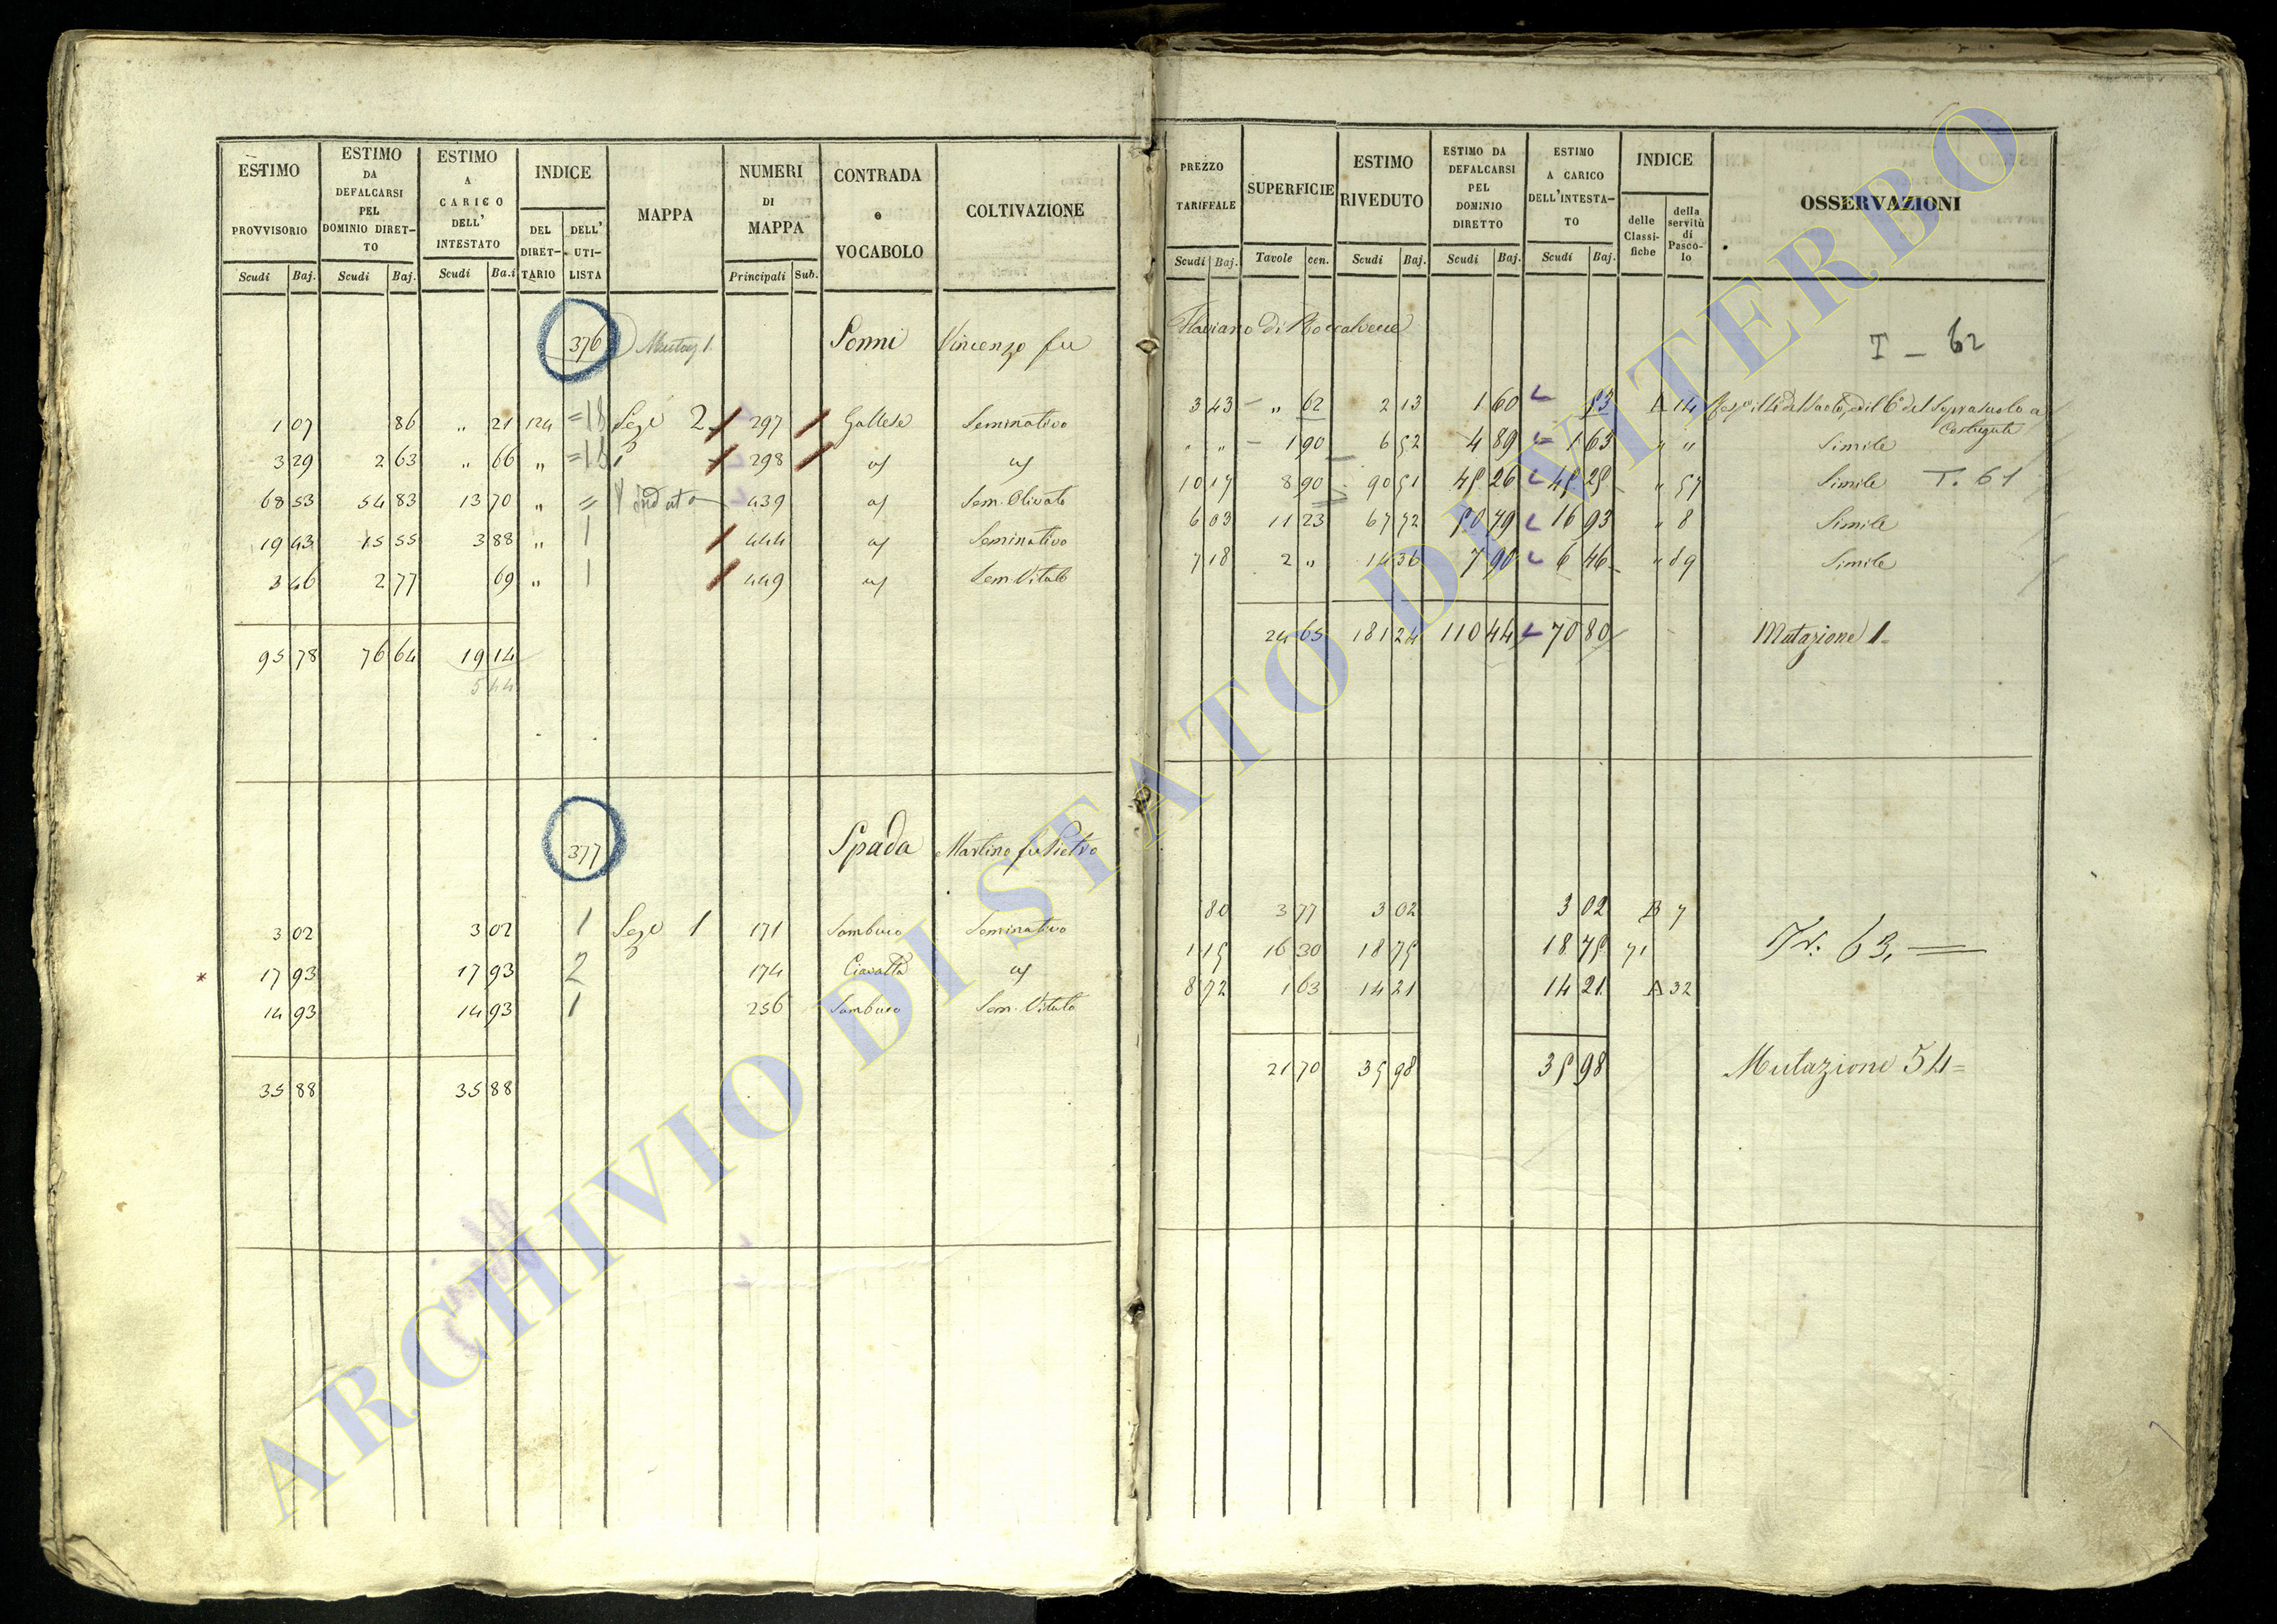 ESTIMO PROVVISORIO Scudi Baj.
ESTIMO DA DEFALCARSI PEL DOMINIO DIRET-TO Scudi Baj.
ESTIMO A CARICO DELL' INTESTATO Scudi Ba.i
INDICE DEL DIRET-TARIO DELL' UTI-LISTA
MAPPA
NUMERI DI MAPPA Principali Sub.
CONTRADA o VOCABOLO
COLTIVAZIONE
PREZZO TARIFFALE Scudi Baj.
SUPERFICIE Tavole cen.
ESTIMO RIVEDUTO Scudi Baj.
ESTIMO DA DEFALCARSI PEL DOMINIO DIRETTO Scudi Baj.
ESTIMO A CARICO DELL'INTESTA-TO Scudi Baj.
INDICE delle Classi-fiche della servitù di Pasco-lo
OSSERVAZIONI
376 Mutaz 1. Sonni Vincenzo fu Flaviano di Roccalvecce T - 62
1 07 86 " 21 124 =18 Sez. 2 297 Gallese Seminativo 3 43 " 62 2 13 1 60 53 A 14
3 29 2 63 " 66 " =18 298 " " 1 90 6 52 4 89 1 63 " " Simile
68 53 54 83 13 70 " = 439 Sem. Olivato 10 17 8 90 90 51 45 26 45 25 " 57 Simile T. 61
19 43 15 55 3 88 " 1 444 Seminativo 6 03 11 23 67 72 50 79 16 93 " 8 Simile
3 46 2 77 69 " 1 449 Sem. Vitato 7 18 2 " 14 36 7 90 6 46 " 89 Simile
95 78 76 64 19 14 24 65 181 24 110 44 70 80 Mutazione 1.
5 44
377 Spada Martino fu Pietro
3 02 3 02 1 Sez. 1 171 Sambuco Seminativo 80 3 77 3 02 3 02 B 7
* 17 93 17 93 2 174 1 15 16 30 18 75 18 75 71 Tr. 63.
14 93 14 93 1 256 Sambuco Sem. Vitato 8 72 1 63 14 21 14 21 A 32
35 88 35 88 21 70 35 98 35 98 Mutazione 54=
ARCHIVIO DI STATO DI VITERBO